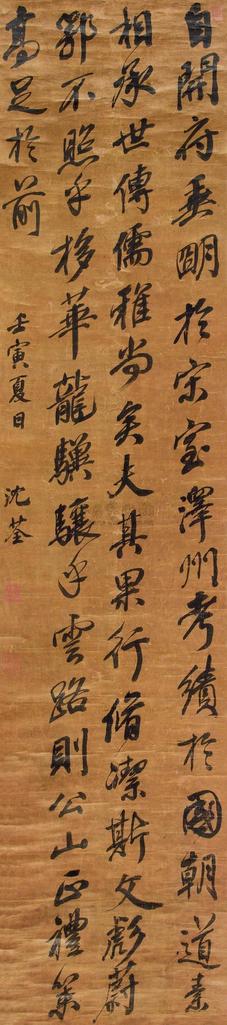 自開府垂明於宋室澤州考績於國朝道素
相承世傳儒雅尚矣夫其果行脩潔斯文彪蔚
鄂不照乎移華龍驥驤乎雲路則公山正禮策
高足於前
壬寅夏日 沈荃